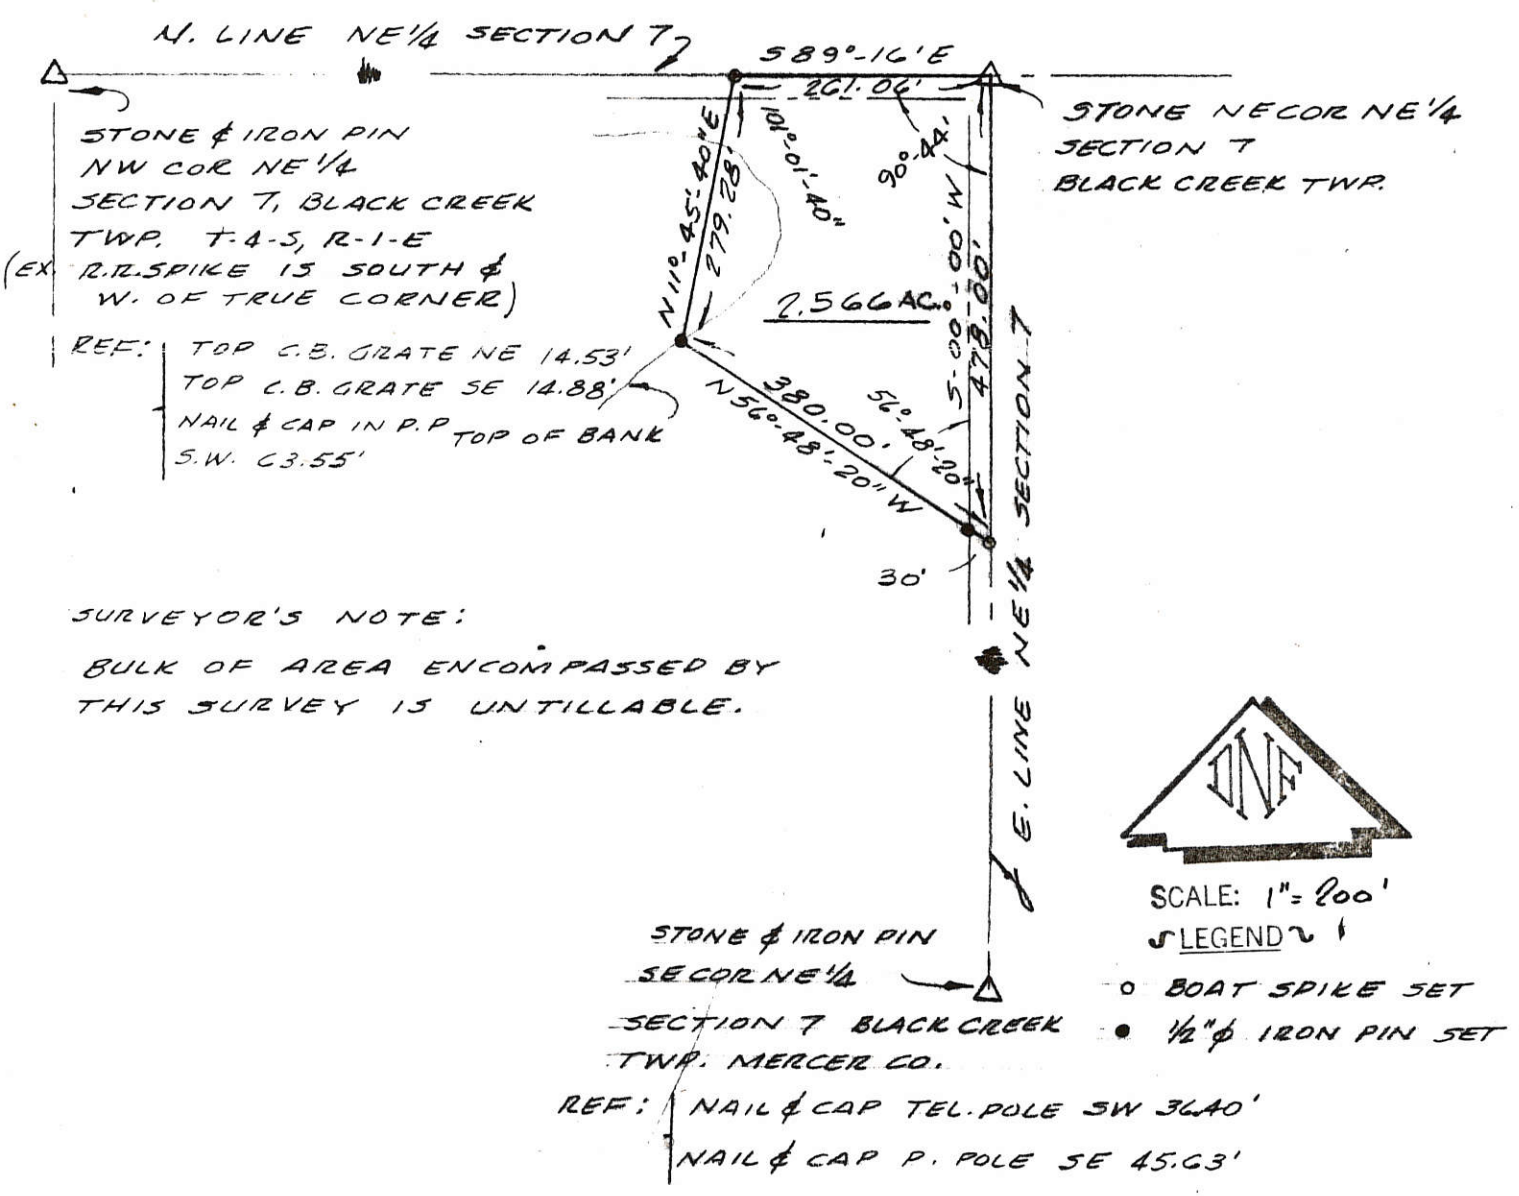 N. LINE NE 1/4 SECTION 7
S 89°-16' E
261.06'
STONE & IRON PIN
NW COR NE 1/4
SECTION 7, BLACK CREEK
TWP. T-4-S, R-1-E
(EX. R.R. SPIKE IS SOUTH &
W. OF TRUE CORNER)
REF:
TOP C.B. GRATE NE 14.53'
TOP C.B. GRATE SE 14.88'
NAIL & CAP IN P.P.
S.W. 63.55'
TOP OF BANK
N 11°-45'-40" E
279.28'
101°-01'-40"
90°-44'
STONE NE COR NE 1/4
SECTION 7
BLACK CREEK TWP.
2.566 AC.
S-00°-00' W
478.00'
380.00'
N 56°-48'-20" W
56°-48'-20"
30'
E. LINE NE 1/4 SECTION 7
SURVEYOR'S NOTE:
BULK OF AREA ENCOMPASSED BY
THIS SURVEY IS UNTILLABLE.
DNF
SCALE: 1" = 200'
LEGEND
BOAT SPIKE SET
1/2"ϕ IRON PIN SET
STONE & IRON PIN
SE COR NE 1/4
SECTION 7 BLACK CREEK
TWP. MERCER CO.
REF:
NAIL & CAP TEL. POLE SW 36.40'
NAIL & CAP P. POLE SE 45.63'